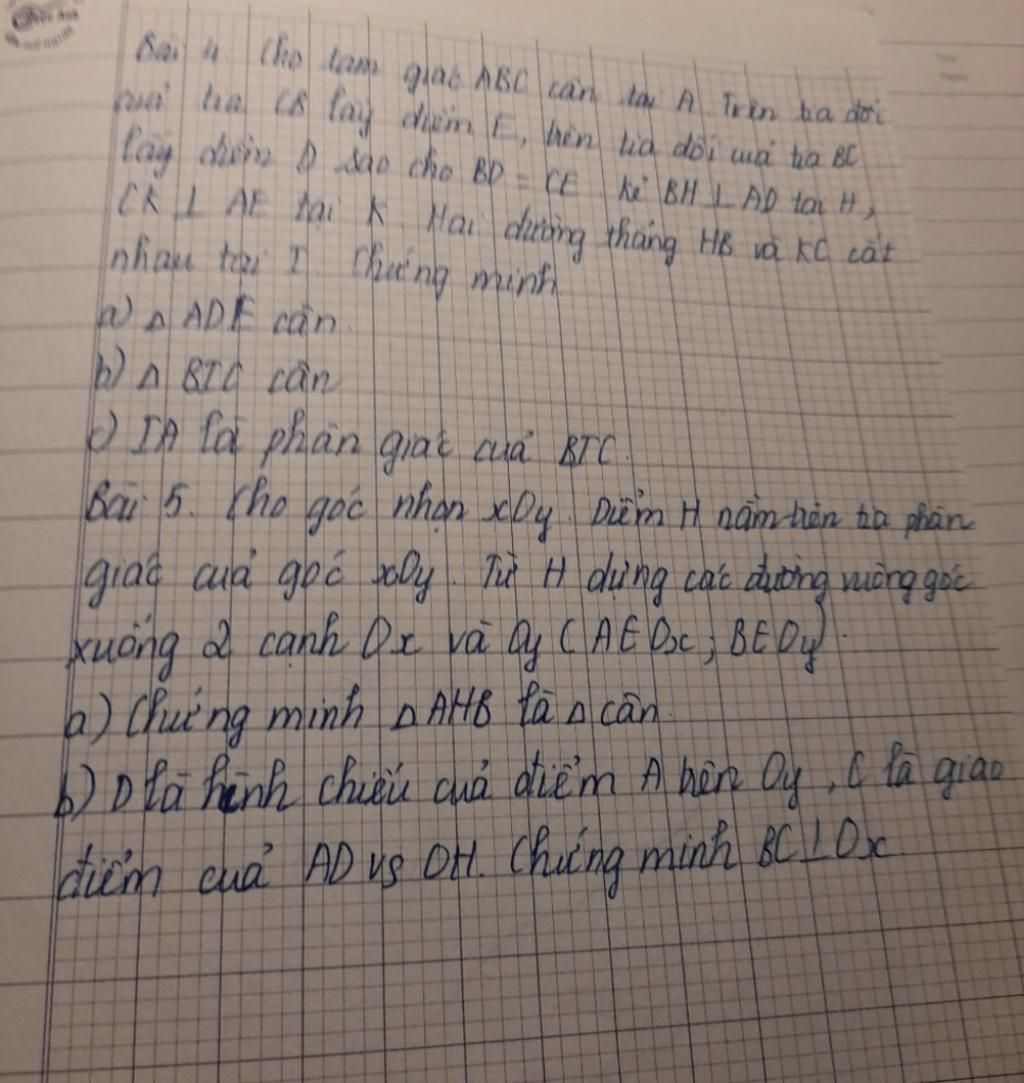 Bài 4. Cho tam giác ABC cân tại A. Trên tia đối
của tia CB lấy điểm E, trên tia đối của tia BC
lấy điểm D sao cho BD = CE. Kẻ BH ⊥ AD tại H,
CK ⊥ AE tại K. Hai đường thẳng HB và KC cắt
nhau tại I. Chứng minh
a) Δ ADE cân.
b) Δ BIC cân
c) IA là phân giác của BIC.
Bài 5. Cho góc nhọn xOy. Điểm H nằm trên tia phân
giác của góc xOy. Từ H dựng các đường vuông góc
xuống 2 cạnh Ox và Oy (A∈Ox; B∈Oy).
a) Chứng minh Δ AHB là Δ cân.
b) D là hình chiếu của điểm A trên Oy, C là giao
điểm của AD vs OH. Chứng minh BC⊥Ox